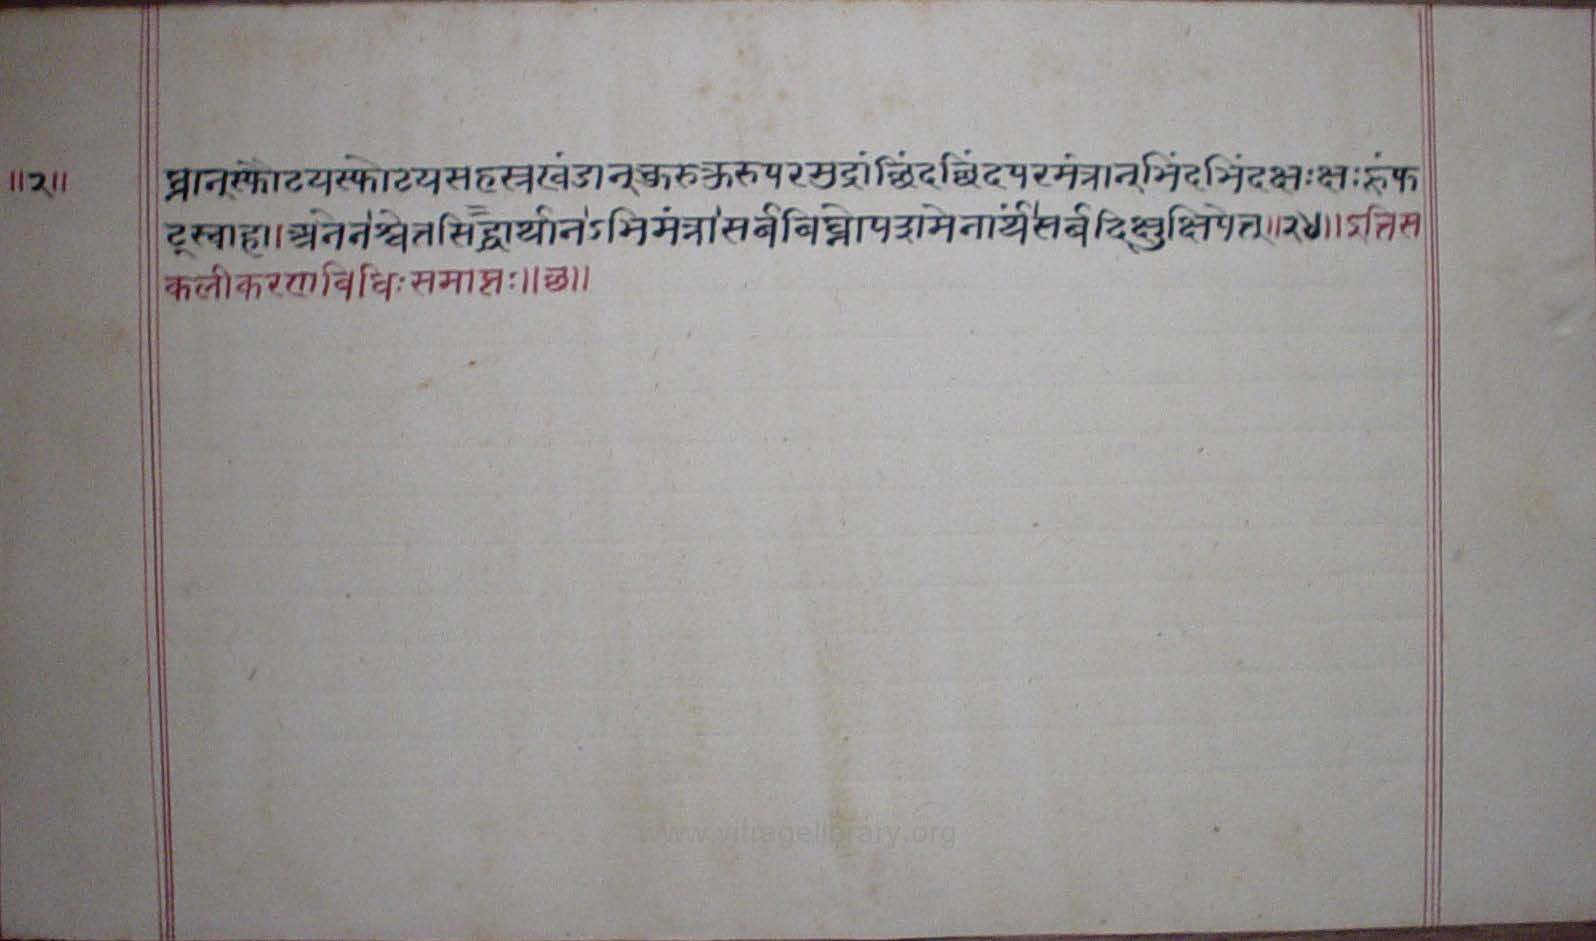 ॥२॥
घ्नान्स्फोटयस्फोटयसहस्त्रखंडान्कुरुकुरुपरमुद्रांछिंदछिंदपरमंत्रान्भिंदभिंदक्षःक्षःह्रुंफ
ट्स्वाहा॥अनेनश्वेतसिद्धार्थानऽभिमंत्रासर्वविघ्नोपशमेनार्थंसर्वदिक्षुक्षिपेत्॥२४॥ऽतिस
कलीकरणविधिःसमाप्तः॥छ॥
www.vitragelibrary.org